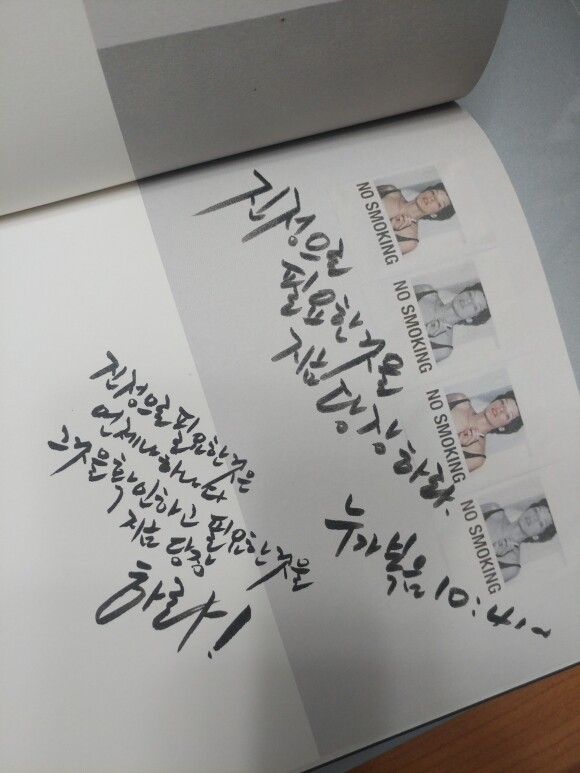 진정으로
필요한것을
지금 당장 하라.
누가복음 10:41~
진정으로 필요한것은
언제나 하나다
그것을 확인하고 필요한것을
지금 당장
하라!
NO SMOKING
NO SMOKING
NO SMOKING
NO SMOKING